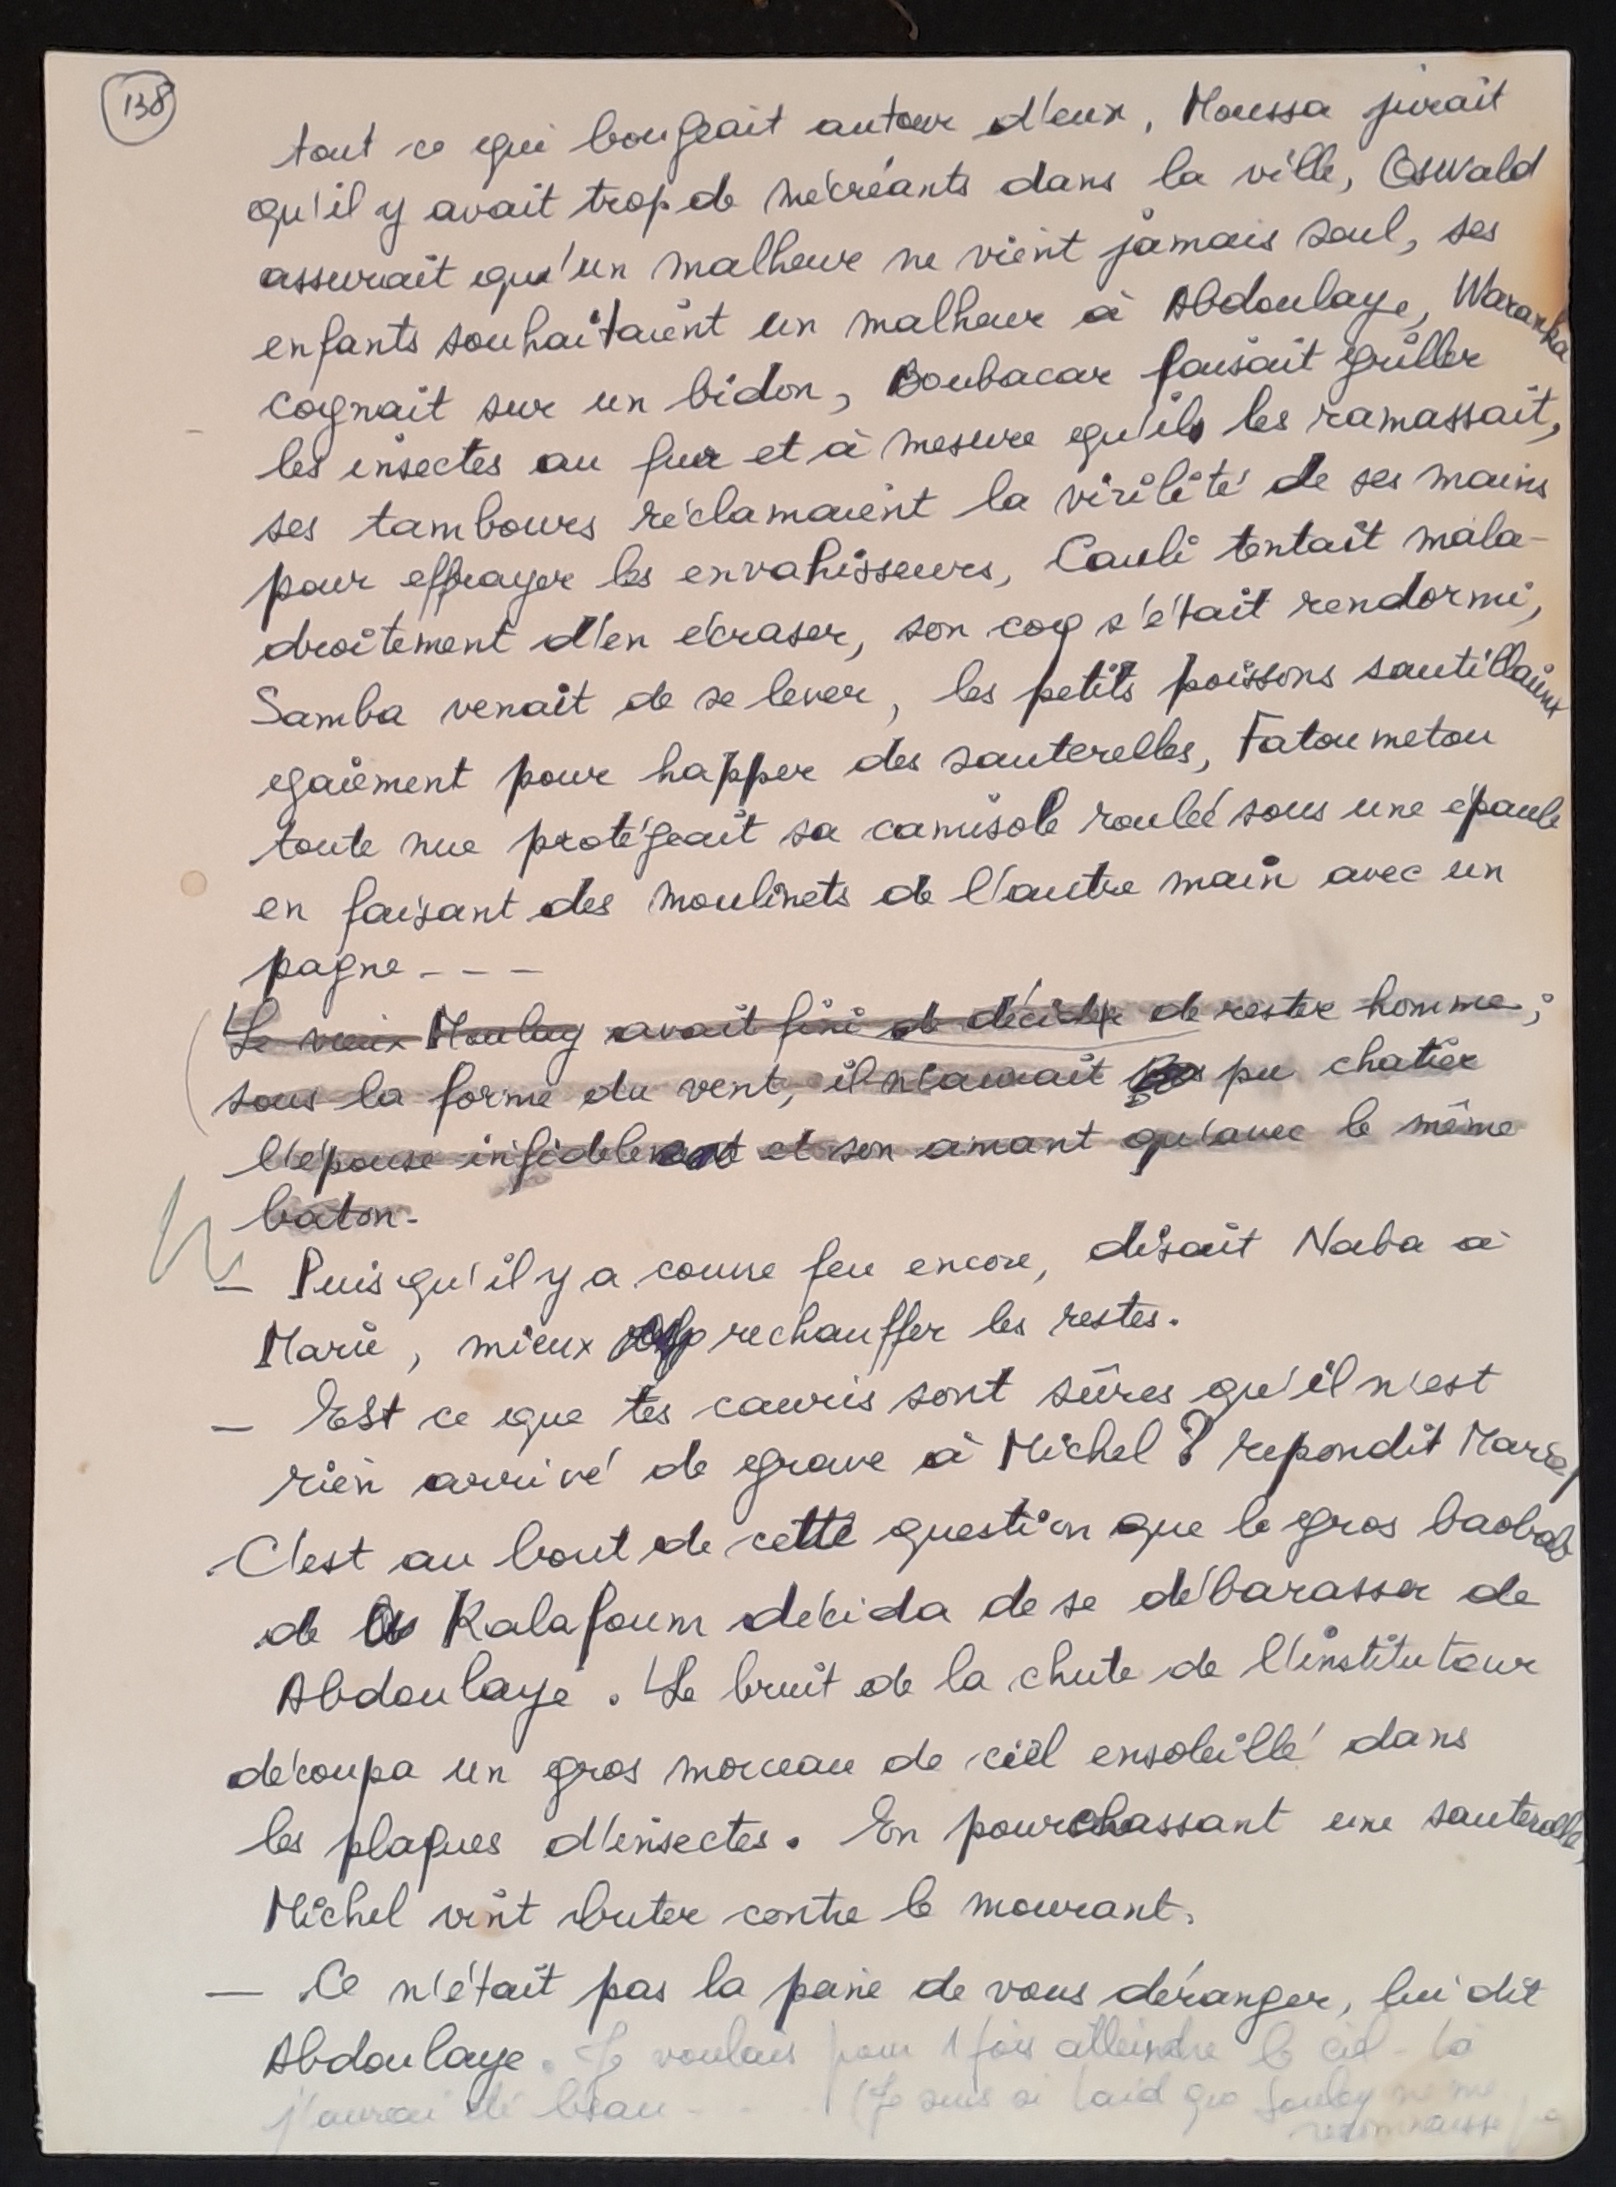 138
tout ce qui bougeait autour d'eux, Moussa jurait
qu'il y avait trop de mécréants dans la ville, Oswald
assurait qu'un malheur ne vient jamais seul, ses
enfants souhaitaient un malheur à Abdoulaye, Waranka
cognait sur un bidon, Boubacar faisait griller
les insectes au fur et à mesure qu'il les ramassait,
ses tambours réclamaient la virilité de ses mains
pour effrayer les envahisseurs, Cauli tentait mala-
droitement d'en écraser, son coq s'était rendormi,
Samba venait de se lever, les petits poissons sautillaient
gaiement pour happer des sauterelles, Fatoumetou
toute nue protégeait sa camisole roulée sous une épaule
en faisant des moulinets de l'autre main avec un
pagne - - -
(Le vieux Moulay avait fini de décider de rester homme ;
sous la forme du vent, il n'aurait pas pu chatier
l'épouse infidele et son amant qu'avec le même
baton.
— Puisqu'il y a couvre feu encore, disait Naba à
Marie, mieux rechauffer les restes.
— Est ce que tes cauris sont sûres qu'il n'est
rien arrivé de grave à Michel ? repondit Marie,
C'est au bout de cette question que le gros baobab
de Kalafoum décida de se débarasser de
Abdoulaye. Le bruit de la chute de l'instituteur
découpa un gros morceau de ciel ensoleillé dans
les plaques d'insectes. En pourchassant une sauterelle,
Michel vint buter contre le mourant.
— Ce n'était pas la peine de vous déranger, lui dit
Abdoulaye. Je voulais pour 1 fois atteindre le ciel - là
j'aurai été beau - - - (Je suis si laid que Soulay ne me
reconnaisse